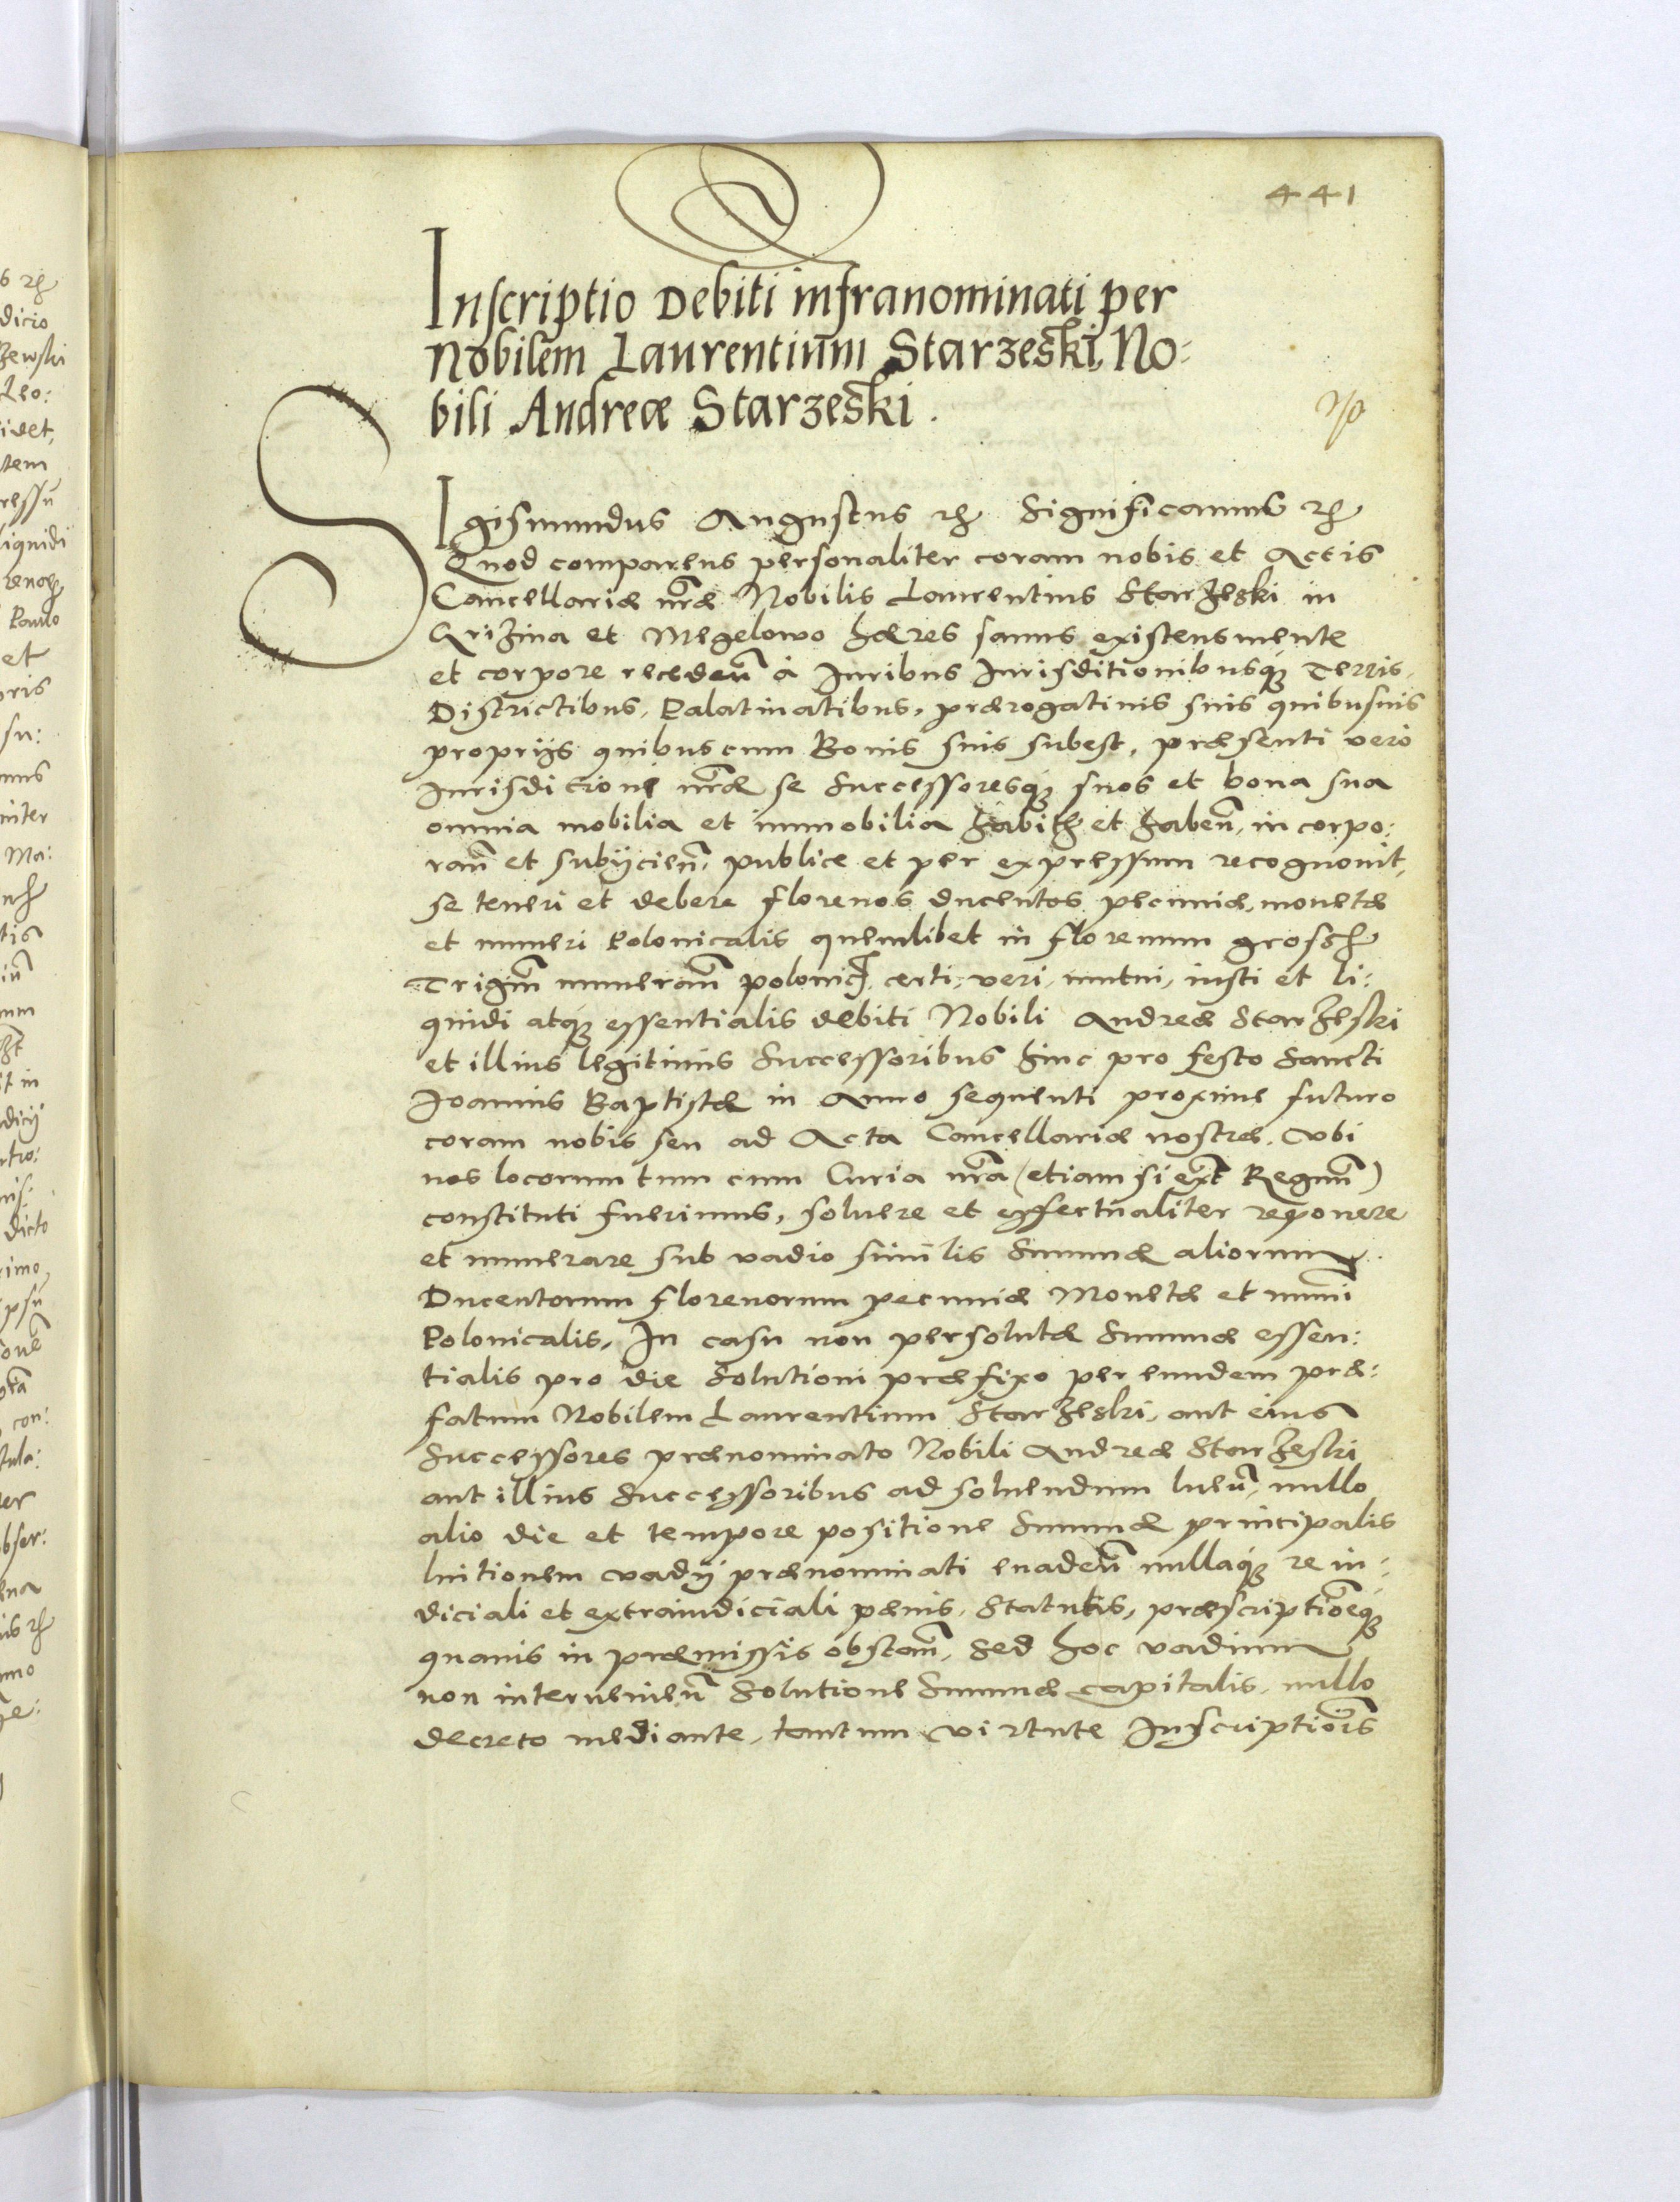 441
Inscriptio Debiti infranominati per
Nobilem Laurentium Starzeski No:
bili Andreæ Starzeski.
SIgismundus Augustus etc Significamus etc
Quod comparens personaliter coram nobis et Actis
Cancellariæ nræ Nobilis Laurentius Starzeski in
et Megelowo hæres sanus existens mente
et corpore receden̄ à Iuribus Iurisditionibusq; Terris,
Districtibus, Palatinatibus, prærogatiuis suis quibusuis
proprijs quibus cum Bonis suis subest, præsenti vero
Iurisdictione nræ se Successoresq; suos et bona sua
omnia mobilia et immobilia habit et haben̄, in corpo:
ran̄ et subijcien̄, publice et per expressum recognouit,
se teneri et debere florenos ducentos pecuniæ, monetæ
et numeri Polonicalis quemlibet in florenum grossos
Trigin̄ numeran̄ polonic, certi, veri, mutui, iusti et li:
quidi atq; essentialis debiti Nobili Andreæ Starzeski
et illius legitimis Successoribus hinc pro festo Sancti
Ioannis Baptistæ in Anno sequenti proxime futuro
coram nobis seu ad Acta Cancellariæ nostræ, vbi
nos locorum tum cum Curia nrā (etiam si ext̄ Regnū)
constituti fuerimus, soluere et effectualiter reponere
et numerare sub vadio similis Summæ aliorum
Ducentorum florenorum pecuniæ Monetæ et numī
Polonicalis, In casu non persolutæ Summæ essen:
tialis pro die Solutioni præfixo per eundem præ:
fatum Nobilem Laurentium Starzeski, aut eius
Successores prænominato Nobili Andreæ Starzeski
aut illius Successoribus ad soluendum luen̄, nullo
alio die et tempore positione Summæ principalis
luitionem vadij prænominati euaden̄ nullaq; re iu:
diciali et extraiudiciali pænis, Statutis, præscriptioneq;
quauis in præmissis obstan̄, Sed hoc vadium
non interuenien̄ Solutione Summæ capitalis, nullo
decreto mediante, tantum virtute Inscriptiōis